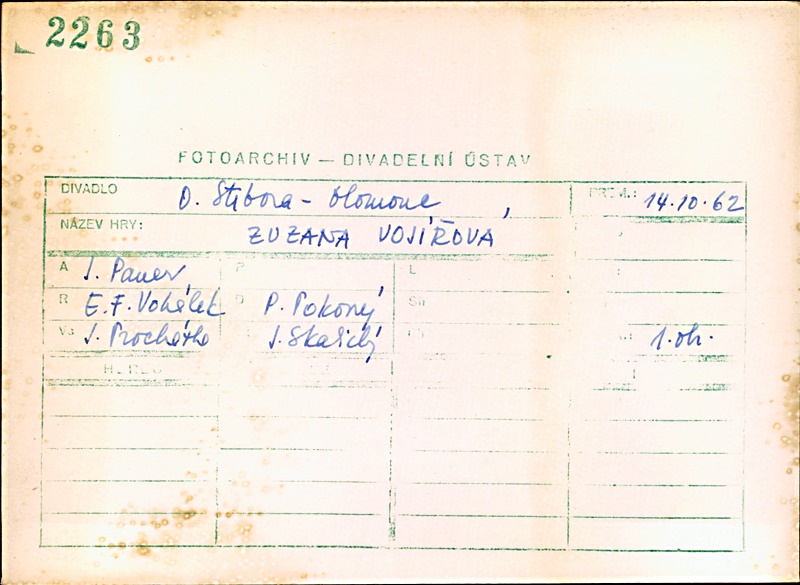 2263
FOTOARCHIV — DIVADELNÍ ÚSTAV
DIVADLO O. Stibora - Olomouc PREM.: 14.10.62
NÁZEV HRY: ZUZANA VOJÍŘOVA
A J. Pauer P L
R E.F. Vohálek D P. Pokorný
J. Procházka J. Skalický 1. ob.